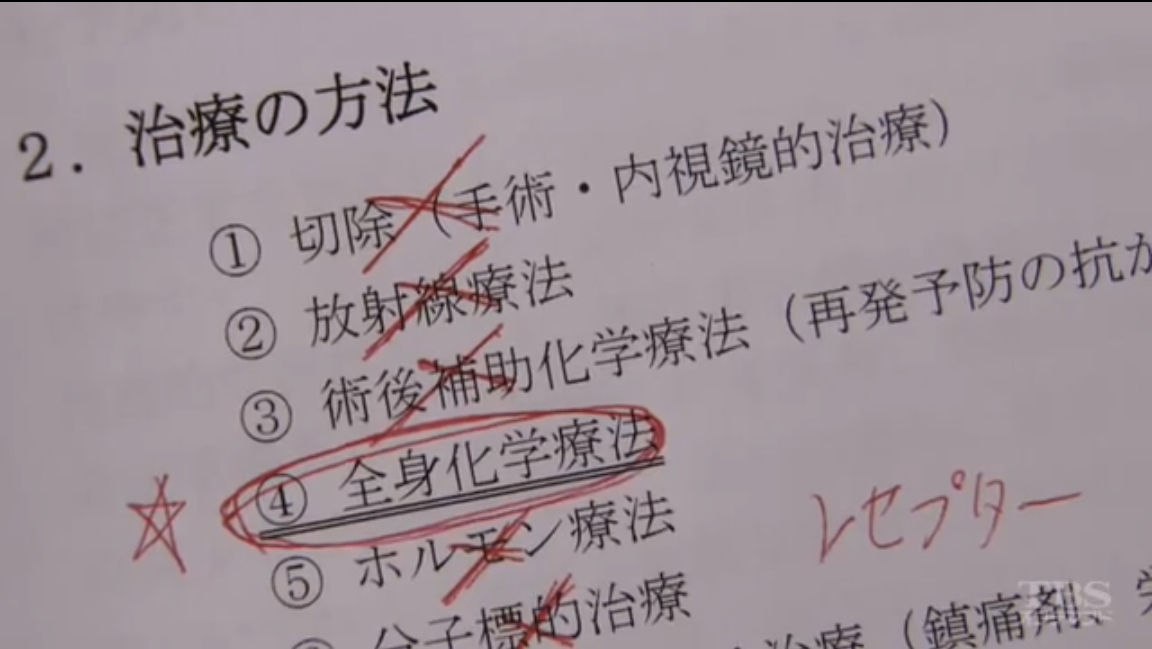 2. 治療の方法
① 切除（手術・内視鏡的治療）
② 放射線療法
③ 術後補助化学療法（再発予防の抗が
④ 全身化学療法
⑤ ホルモン療法
レセプター
分子標的治療
治療（鎮痛剤、
TBS